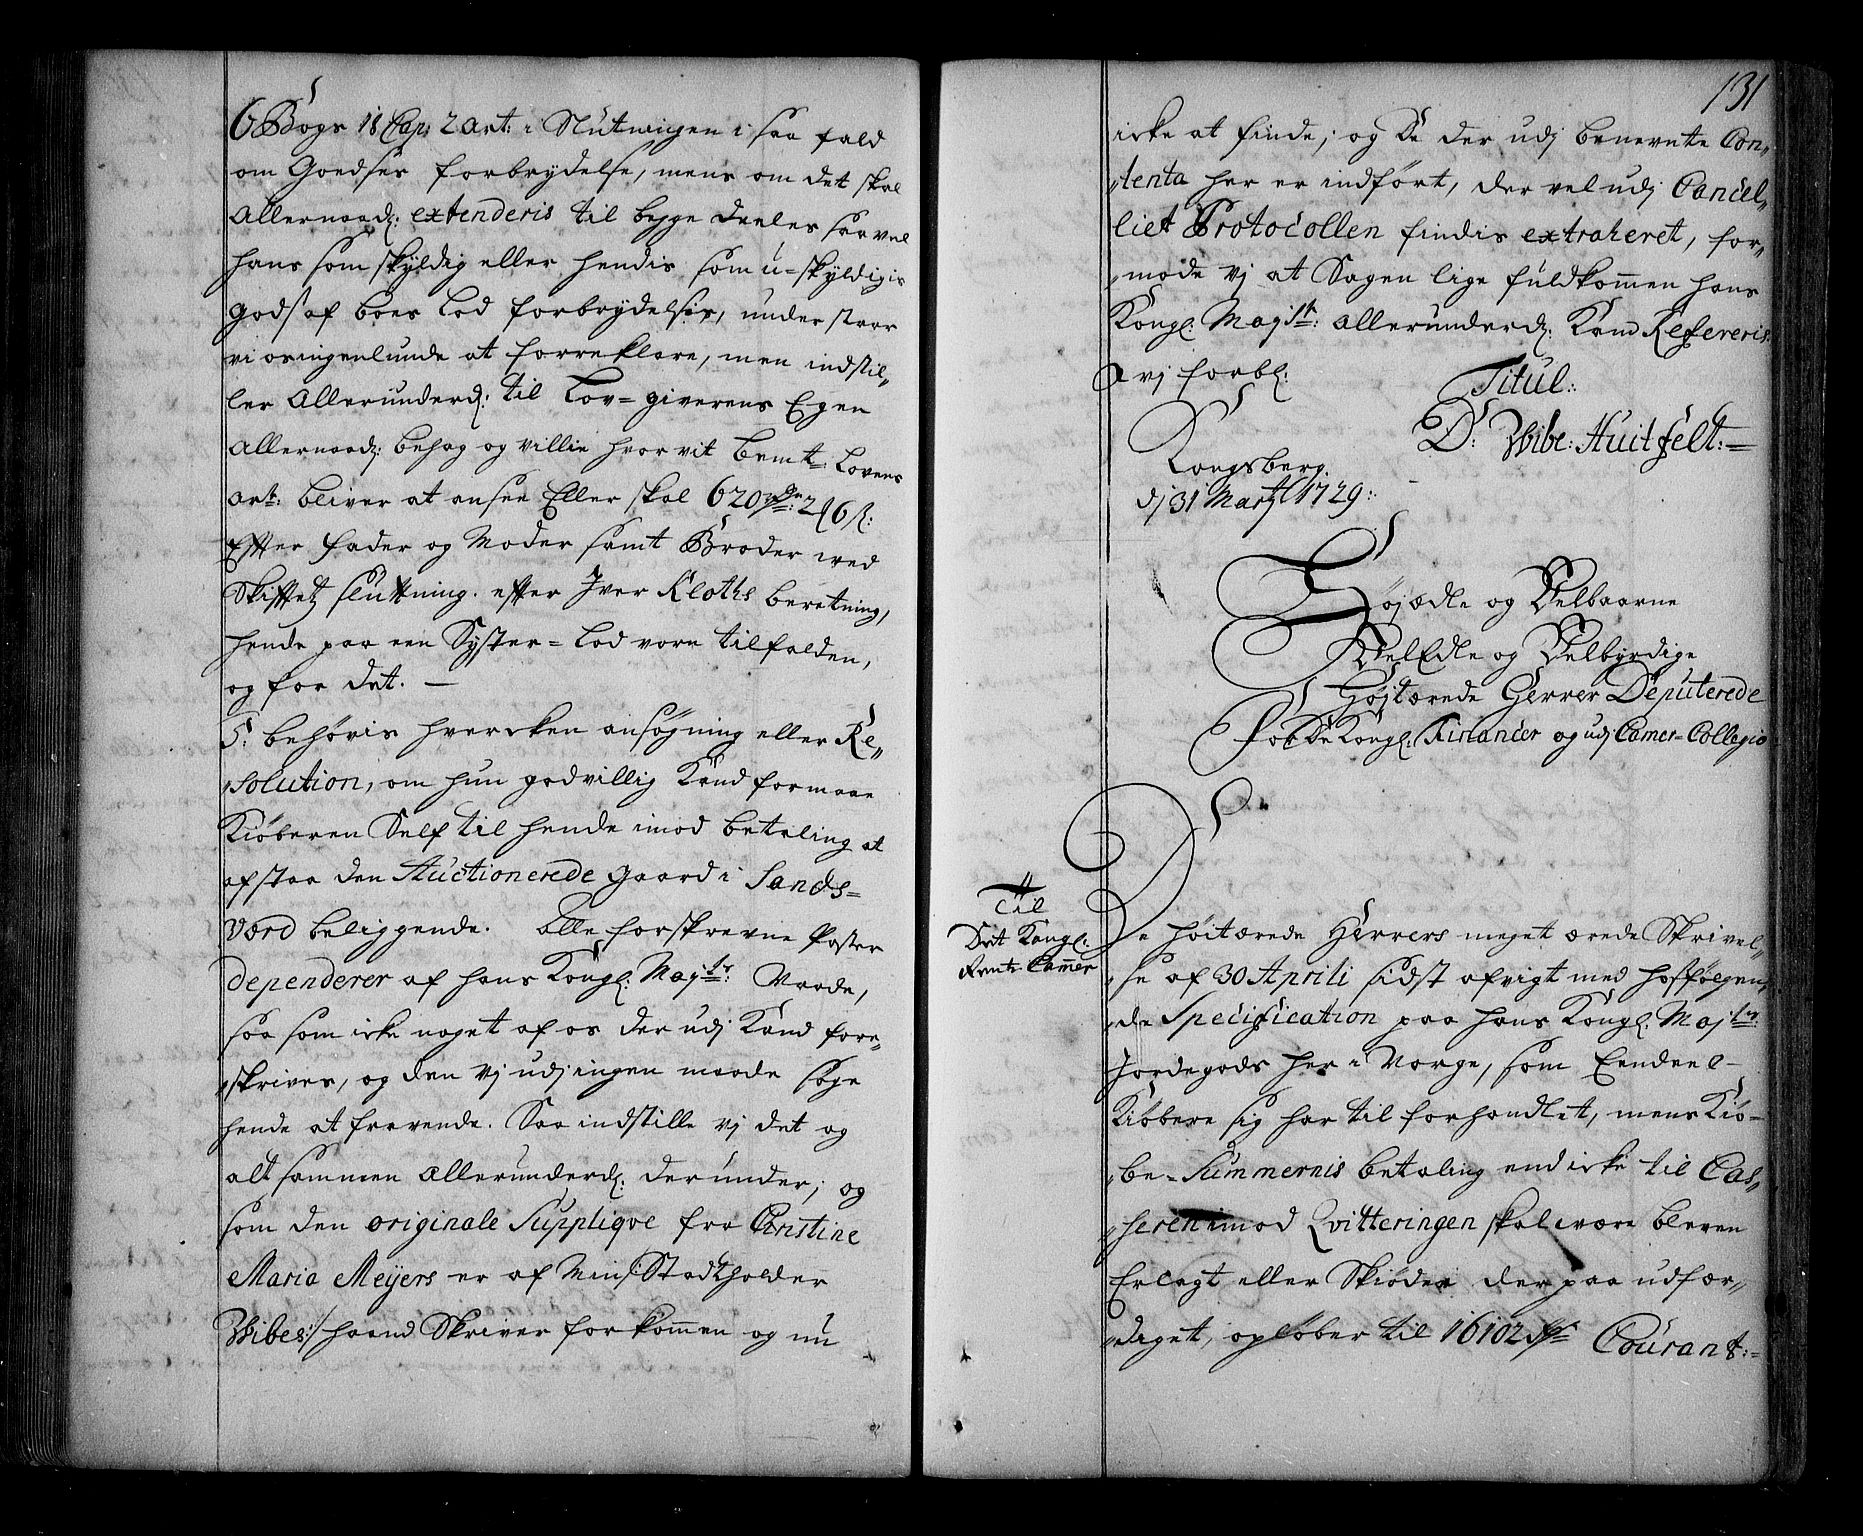 6 Bogs 18 Cap: 2 art: i Slutningen i saa fald
om Goedses forbrydelse, mens om det skal
allernaad: extenderis til begge deeles saavel
hans som skyldig eller hendis som u-skyldigis
gods af boes Lod forbrydelser, understaar
vi os ingenlunde at forreklare, men indstil„
ler allerunderd: til Lov-giverens Egen
allernaad: behag og villie hvorvit bemt: Lovens
art: bliver at ansee Eller skal 620 2 6 s:
Efter fader og Moder samt Broder ved
Skiftetz sluttning. efter Iver Kloths beretning,
hende paa een Syster-Lod vere tilfalden,
og for det. —
5. behøvis hvercken ansøgning eller Re„
„solution, om hun godvillig Kand formaae
Kiøberen Self til hende imod betaling at
afstaa den Auctionerede gaard i Sands-
værd beliggende. Alle forskrevne Poster
dependerer af hans Kongl: Maytz: Naade,
saa som icke noget af os der udj Kand fore„
„skrives, og den vj udj ingen maade søge
hende at fravende. Saa indstille vj det og
altsammen allerunderd: derunder; og
som den originale Supplique fra Christine
Maria Meyers er af Min /: Stadtholder
Wibes:/ haand Skriver forkommen og nu
131
icke at finde; og De der udj benevnte Con„
„tenta her er indført, der vel udj Cancel„
liet Protocollen findis extraheret, for„
„mode vj at Sagen lige fuldkommen hans
Kongl: Mayst: allerunderd: Kand Refereris.
vj forbl:
Titul:
D: Wibe: Huitfelt:
Kongsberg.
dj 31 Martz 1729:
Højædle og Velbaarne
VelEdle og Velbyrdige
Højtærede Herrer Deputerede
For De Kongl: Financer og udj Camer-Collegio
Til
Det Kongl:
Rente Cammer
De høitærede Herrers meget ærede Skrivel„
„se af 30 Aprili sidst afvigt med hosfølgen„
„de Specification paa hans Kongl: Maytz:
Jordegods her i Norge, som Eendeel
Kiøbere sig har til forhandlet, mens Kiø-
„be-Summernis betaling end icke til Cas„
„seren imod Qvitteringen skal være bleven
Erlagt eller Skiøder der paa udfær„
„diget, opløber til 16102 Courant: